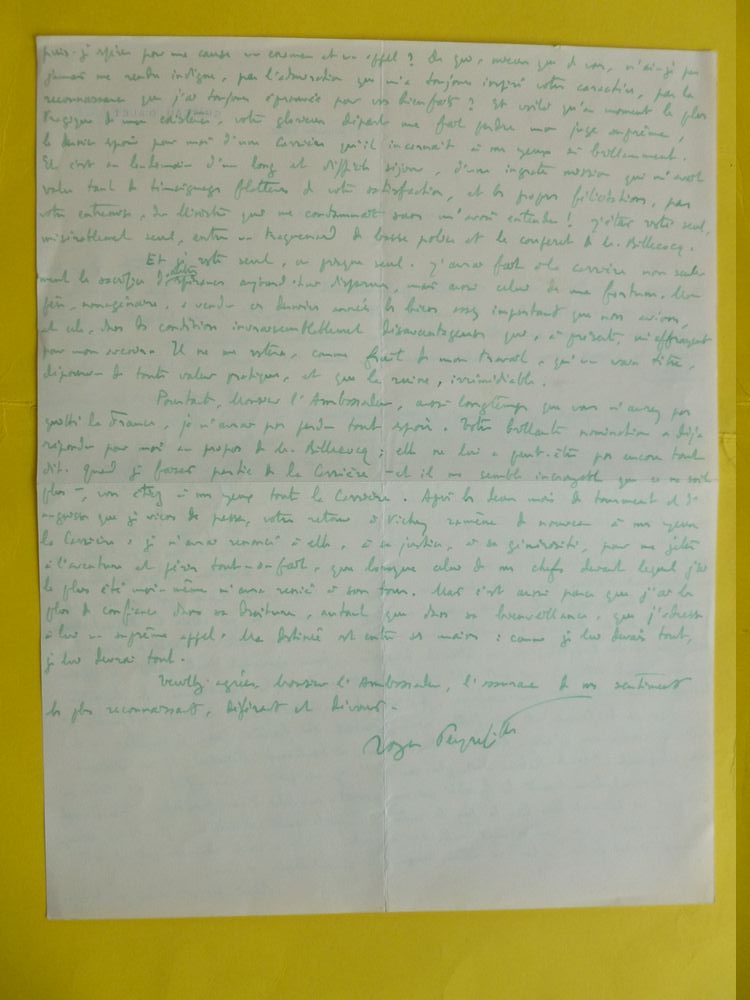 puis-je espérer pour ma cause un examen et un appel ? De quoi, mieux que de vous, n'ai-je pas
jamais me rendre indigne, par l'admiration que m'a toujours inspiré votre caractère, par la
reconnaissance que j'ai toujours éprouvée pour vos bienfaits ? Et voilà qu'au moment le plus
tragique de mon existence, votre glorieux départ me fait perdre mon juge suprême,
le dernier espoir pour moi d'une Carrière qu'il incarnait à mes yeux si brillamment.
Et c'est au lendemain d'un long et difficile séjour, d'une ingrate mission qui m'avait
valu tant de témoignages flatteurs de votre satisfaction, et les propres félicitations, par
votre entremise, du Ministre que me condamnait sans m'avoir entendu ! J'étais resté seul,
misérablement seul, entre un traquenard de basse police et le couperet de M. Billecocq.
Et je reste seul, ou presque seul. J'aurai fait à la Carrière non seule-
ment le sacrifice d'espérances aujourd'hui disparues, mais aussi celui de ma fortune. Mon
père, nonagénaire, a vendu ces dernières années les biens assez important que nous avions,
et cela, dans des conditions invraisemblablement désavantageuses qui, à présent, m'effrayent
pour mon avenir. Il ne me restera, comme fruit de mon travail, qu'un vain titre,
dépourvu de toute valeur pratique, et que la ruine, irrémédiable.
Pourtant, Monsieur l'Ambassadeur, aussi longtemps que vous n'aurez pas
quitté la France, je n'aurai pas perdu tout espoir. Votre brillante nomination a déjà
répondu pour moi au propos de M. Billecocq ; elle ne lui a peut-être pas encore tout
dit. Quand je faisais partie de la Carrière - et il me semble incroyable que ce ne soit
plus -, vous étiez à mes yeux toute la Carrière. Après les deux mois de tourment et d'
angoisse que je viens de passer, votre retour à Vichy ramène de nouveau à mes yeux
la Carrière : je n'aurai renoncé à elle, à sa justice, à sa générosité, pour me jeter
à l'aventure et périr tout-à-fait, que lorsque celui de mes chefs devant lequel j'ai
le plus été moi-même m'aura renié à son tour. Mais c'est aussi parce que j'ai le
plus de confiance dans sa droiture, autant que dans sa bienveillance, que j'adresse
à lui un suprême appel. Ma destinée est entre ses mains : comme je lui devais tout,
je lui devrai tout.
Veuillez agréer, Monsieur l'Ambassadeur, l'assurance de mes sentiments
les plus reconnaissants, déférents et dévoués.
Roger Peyrefitte